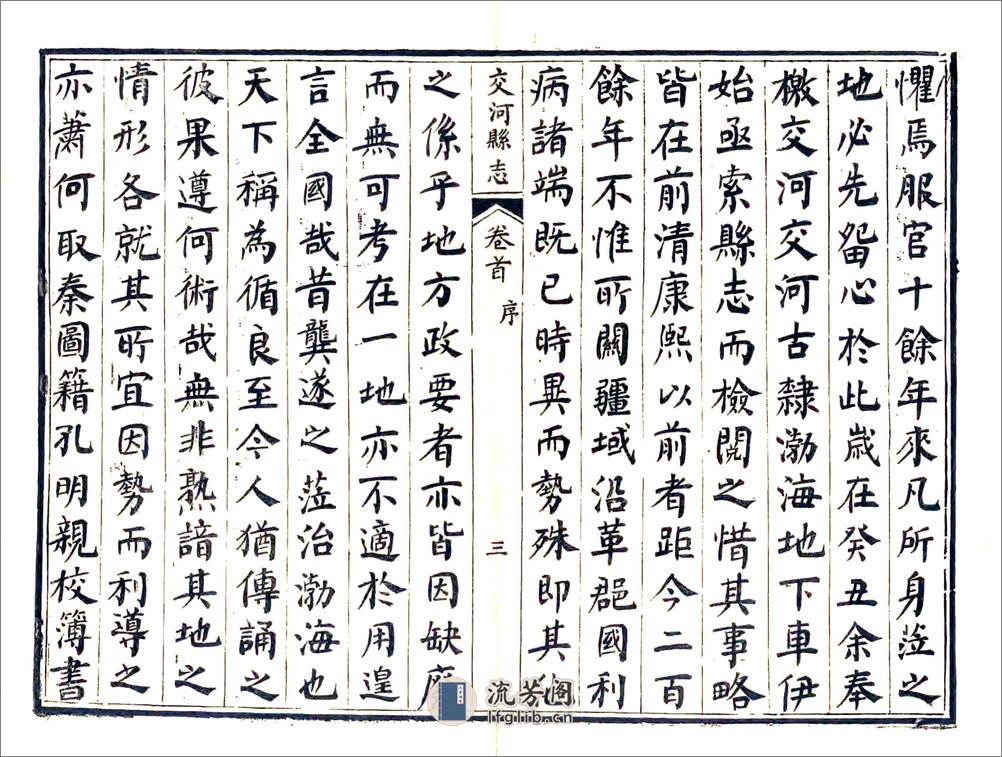 懼焉服官十餘年來凡所身蒞之
地必先畱心於此歲在癸丑余奉
檄交河交河古隸渤海地下車伊
始亟索縣志而檢閱之惜其事略
皆在前清康熙以前者距今二百
餘年不惟所關疆域沿革郡國利
病諸端既已時異而勢殊即其他
交河縣志 卷首 序 三
之係乎地方政要者亦皆因缺
而無可考在一地亦不適於用遑
言全國哉昔龔遂之蒞治渤海也
天下稱為循良至今人猶傳誦之
彼果遵何術哉無非熟諳其地之
情形各就其所宜因勢而利導之
亦蕭何取秦圖籍孔明親校簿書
流芳阁
lfglib.cn